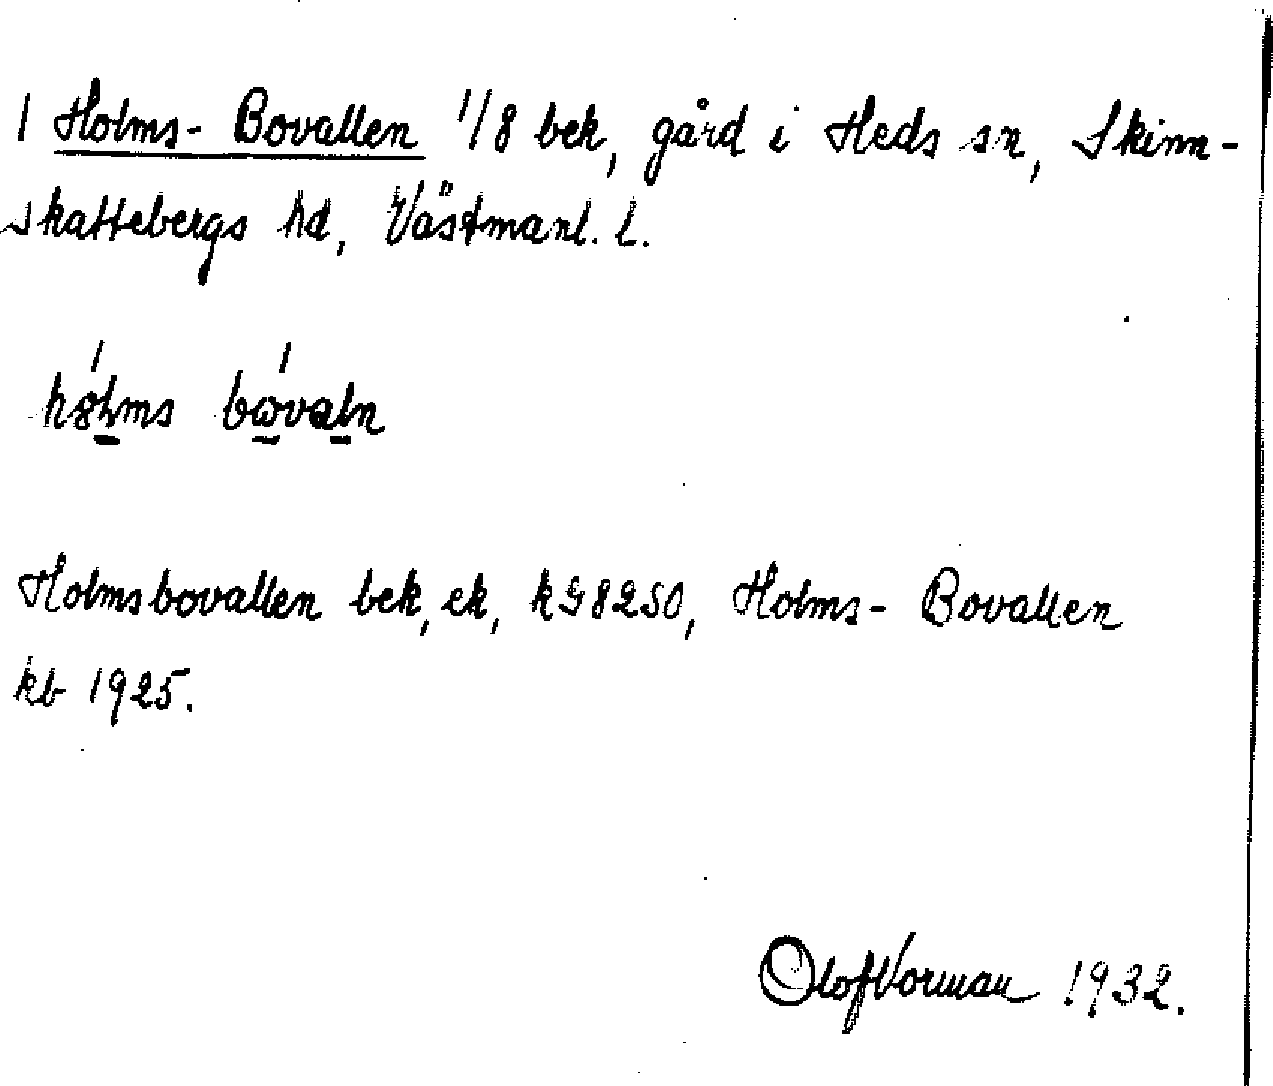 1 Holms- Bovallen 1/8 bek, gård i Heds sn, Skinn-
skattebergs hd, Västmanl. l.
Holmsbovallen bek, ek, k G8250, Holms- Bovallen
kb 1925.
Olof Vorman 1932.